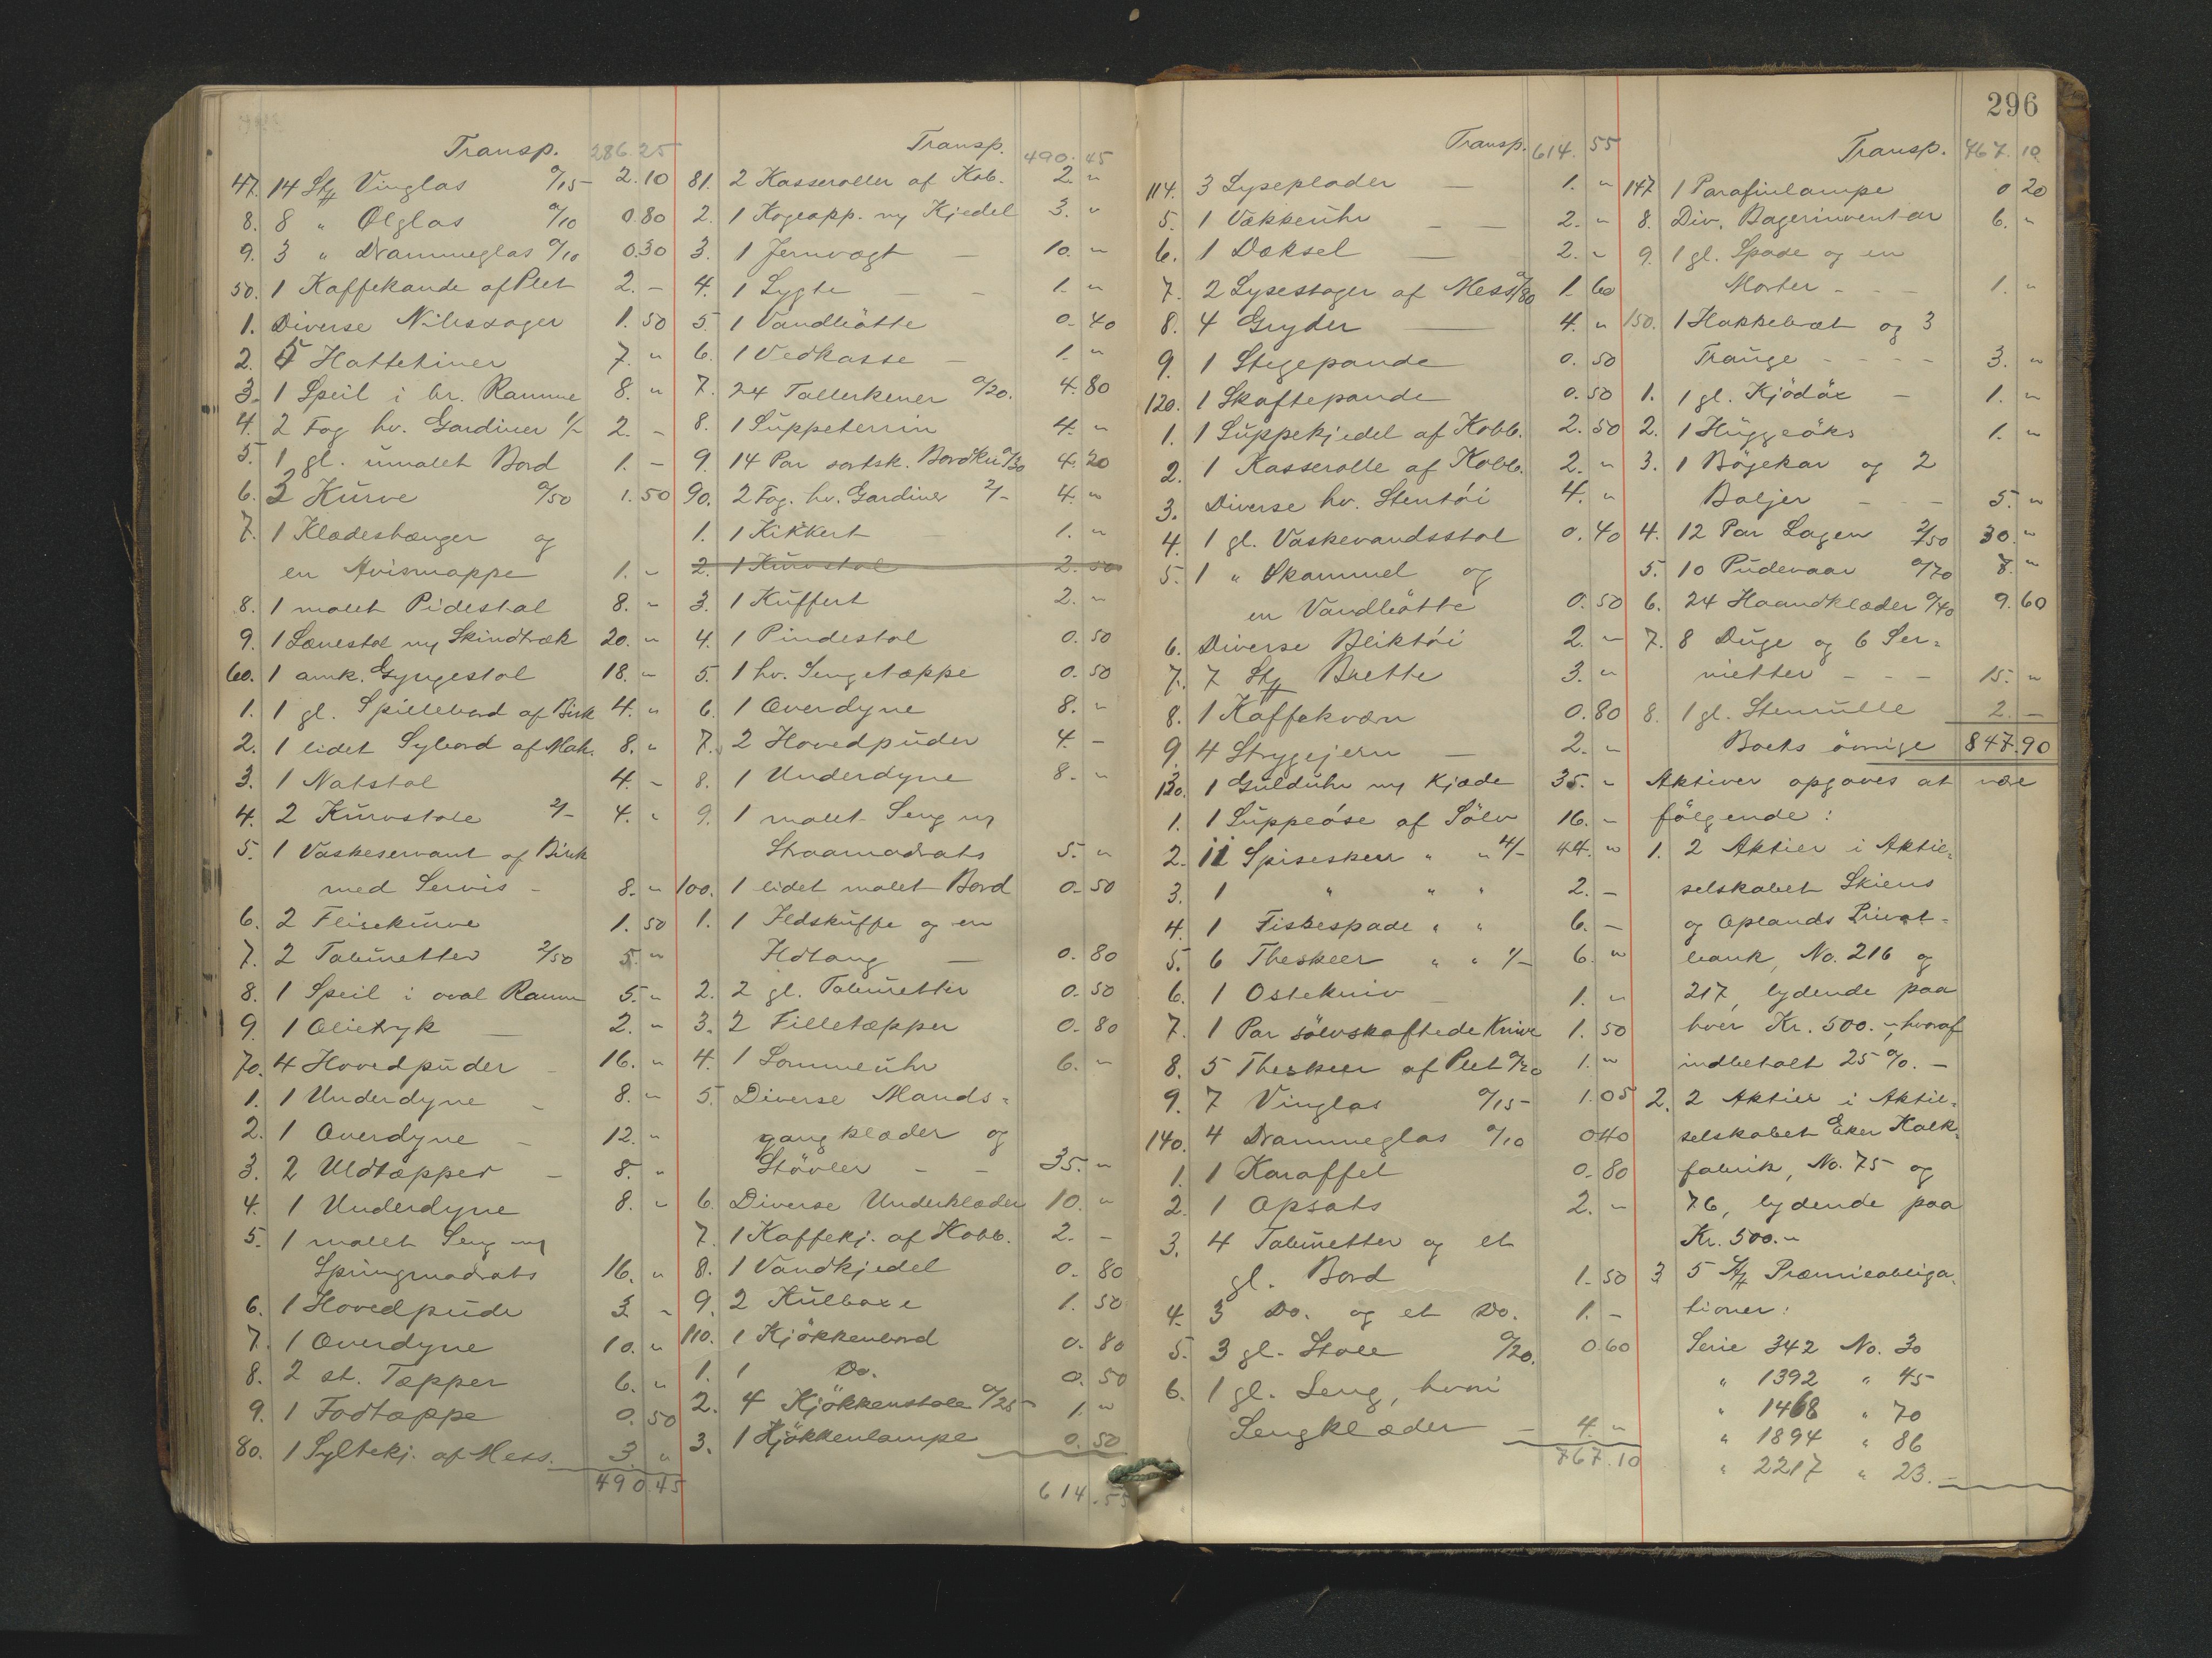 Transp. 286.25
47. 14 Stk Vinglas 0/15 2.10
8. 8 " Ølglas 0/10 0.80
9. 3 " Drammeglas 0/10 0.30
50. 1 Kaffekande af Plet 2. –
1. Diverse Nibssager 1.50
2. 5 Hatteкiner 7. "
3. 1 Speil i br. Ramme 8. "
4. 2 Fag hv. Gardiner 1/– 2. –
5. 1 gl. umalet Bord 1. –
6. 3 Kurve 0/50 1.50
7. 1 Klædeshænger og
en Avismappe 1. –
8. 1 malet Pidestal 8. –
9. 1 Lænestol m/ Skindtræk 20. "
60. 1 amk. Gyngestol 18. "
1. 1 gl. Spillebord af Birk 4. "
2. 1 lidet Sybord af Mah. 8. "
3. 1 Natstol 4. –
4. 2 Kurvstole 2/– 4. "
5. 1 Vaskeservant af Birk
med Servis – 8. "
6. 2 Flisekurve 1.50
7. 2 Taburetter 2/50 5. "
8. 1 Speil i oval Ramme 5. "
9. 1 Olietryk – 2. "
70. 4 Hovedpuder – 16. "
1. 1 Underdyne – 8. "
2. 1 Overdyne – 12. "
3. 2 Uldtæpper – 8. "
4. 1 Underdyne 8. "
5. 1 malet Seng m/
Springmadrats 16. "
6. 1 Hovedpude 3 "
7. 1 Overdyne 10. "
8. 2 st. Tæpper 6. "
9. 1 Fodtæppe 0.50
80. 1 Syltekj. af Mess. 3. "
490.45
Transp. 490.45
81. 2 Kasseroller af Kob. 2. "
2. 1 Kogeapp. m/ Kjedel 3. "
3. 1 Jernvægt – 10. "
4. 1 Lygte – 1. "
5. 1 Vandbøtte 0.40
6. 1 Vedkasse – 1. "
7. 24 Tallerkener 0/20. 4.80
8. 1 Suppeterrin 4. "
9. 14 Par sortsk. Bordkn. 0/30 4.20
90. 2 Fag. hv. Gardiner 2/– 4. "
1. 1 Kikkert 1. "
2. 1 Kurvstol 2.50
3. 1 Kuffert 2. "
4. 1 Pindestol 0.50
5. 1 hv. Sengetæppe 0.50
6. 1 Overdyne 8. "
7. 2 Hovedpuder 4. –
8. 1 Underdyne 8. "
9. 1 malet Seng m/
Straamadrats 5. "
100. 1 lidet malet Bord 0.50
1. 1 Ildskuffe og en
Ildtang – 0.80
2. 2 gl. Taburetter 0.50
3. 2 Filletæpper 0.80
4. 1 Lommeuhr 6. –
5. Diverse Mands=
gangklæder og
Støvler – – 35. "
6. Diverse Underklæder 10. "
7. 1 Kaffekj. af Kobb. 2. –
8. 1 Vandkjedel 0.80
9. 2 Kulboxe 1.50
110. 1 Kjøkkenbord 0.80
1. 1 Do. 0.50
2. 4 Kjøkkenstole 0/25 1. "
3. 1 Kjøkkenlampe 0.50
614.55
296
Transp. 614.55
114. 3 Lyseplader – 1. "
5. 1 Vækkeuhr – – 2. "
6. 1 Dæksel – 2. "
7. 2 Lysestager af Mess. 0/80 1.60
8. 4 Gryder – 4. "
9. 1 Stegepande 0.50
120. 1 Skaftepande 0.50
1. 1 Suppekjedel af Kobb. 2.50
2. 1 Kasserolle af Kobb. 2. "
3. Diverse hv. Stentøi 4. "
4. 1 gl. Vaskevandsstol 0.40
5. 1 " Skammel og
en Vandbøtte 0.50
6. Diverse Bliktøi 2. –
7. 7 Stk Brette 3. "
8. 1 Kaffekværn 0.80
9. 4 Strygejern – 2. "
130. 1 Gulduhr m/ Kjæde 35. "
1. 1 Suppeøse af Sølv 16. –
2. 11 Spiseskeer " " 4/– 44. "
3. 1 " " " 2. –
4. 1 Fiskespade " " 6. –
5. 6 Theskeer " " 1/– 6. "
6. 1 Ostekniv – 1. "
7. 1 Par sølvskaftede Knive 1.50
8. 5 Theskeer af Plet 0/20 1. "
9. 7 Vinglas 0/15 1.05
140. 4 Drammeglas 0/10 0.40
1. 1 Karaffel 0.80
2. 1 Opsats 2. –
3. 4 Taburetter og et
gl. Bord 1.50
4. 3 Do. og et Do. 1. –
5. 3 gl. Stole 0/20. 0.60
6. 1 gl. Seng, hvori
Sengklæder – 4. "
767.10
Transp. 767.10
147 1 Parafinlampe 0 20
8. Div. Bagerinventar 6. "
9. 1 gl. Spade og en
Morter – – – 1. "
150. 1 Hakkebræt og 3
Trauge – – – – 3. "
1. 1 gl. Kjødøx – 1. "
2. 1 Huggeøks 1. "
3. 1 Bøgekar og 2
Baljer – – – 5. "
4. 12 Par Lagen 2/50 30. "
5. 10 Pudevaar 0/70 7. "
6. 24 Haandklæder 0/40 9.60
7. 8 Duge og 6 Ser=
vietter – – – 15. "
8. 1 gl. Stenrulle 2. –
847.90
Boets øvrige
Aktiver opgaves at være
følgende:
1. 2 Aktier i Aktie=
selskabet Skiens
og Oplands Privat=
bank, No. 216 og
217, lydende paa
hver Kr. 500. ", hvoraf
indbetalt 25 %. –
2. 2 Aktier i Aktie=
selskabet Eker Kalk=
fabrik, No. 75 og
76, lydende paa
Kr. 500. "
3 5 Stk Præmieobliga=
tioner:
Serie 342 No. 30
" 1392 " 45
" 1468 " 70
" 1894 " 86
" 2217 " 23. –